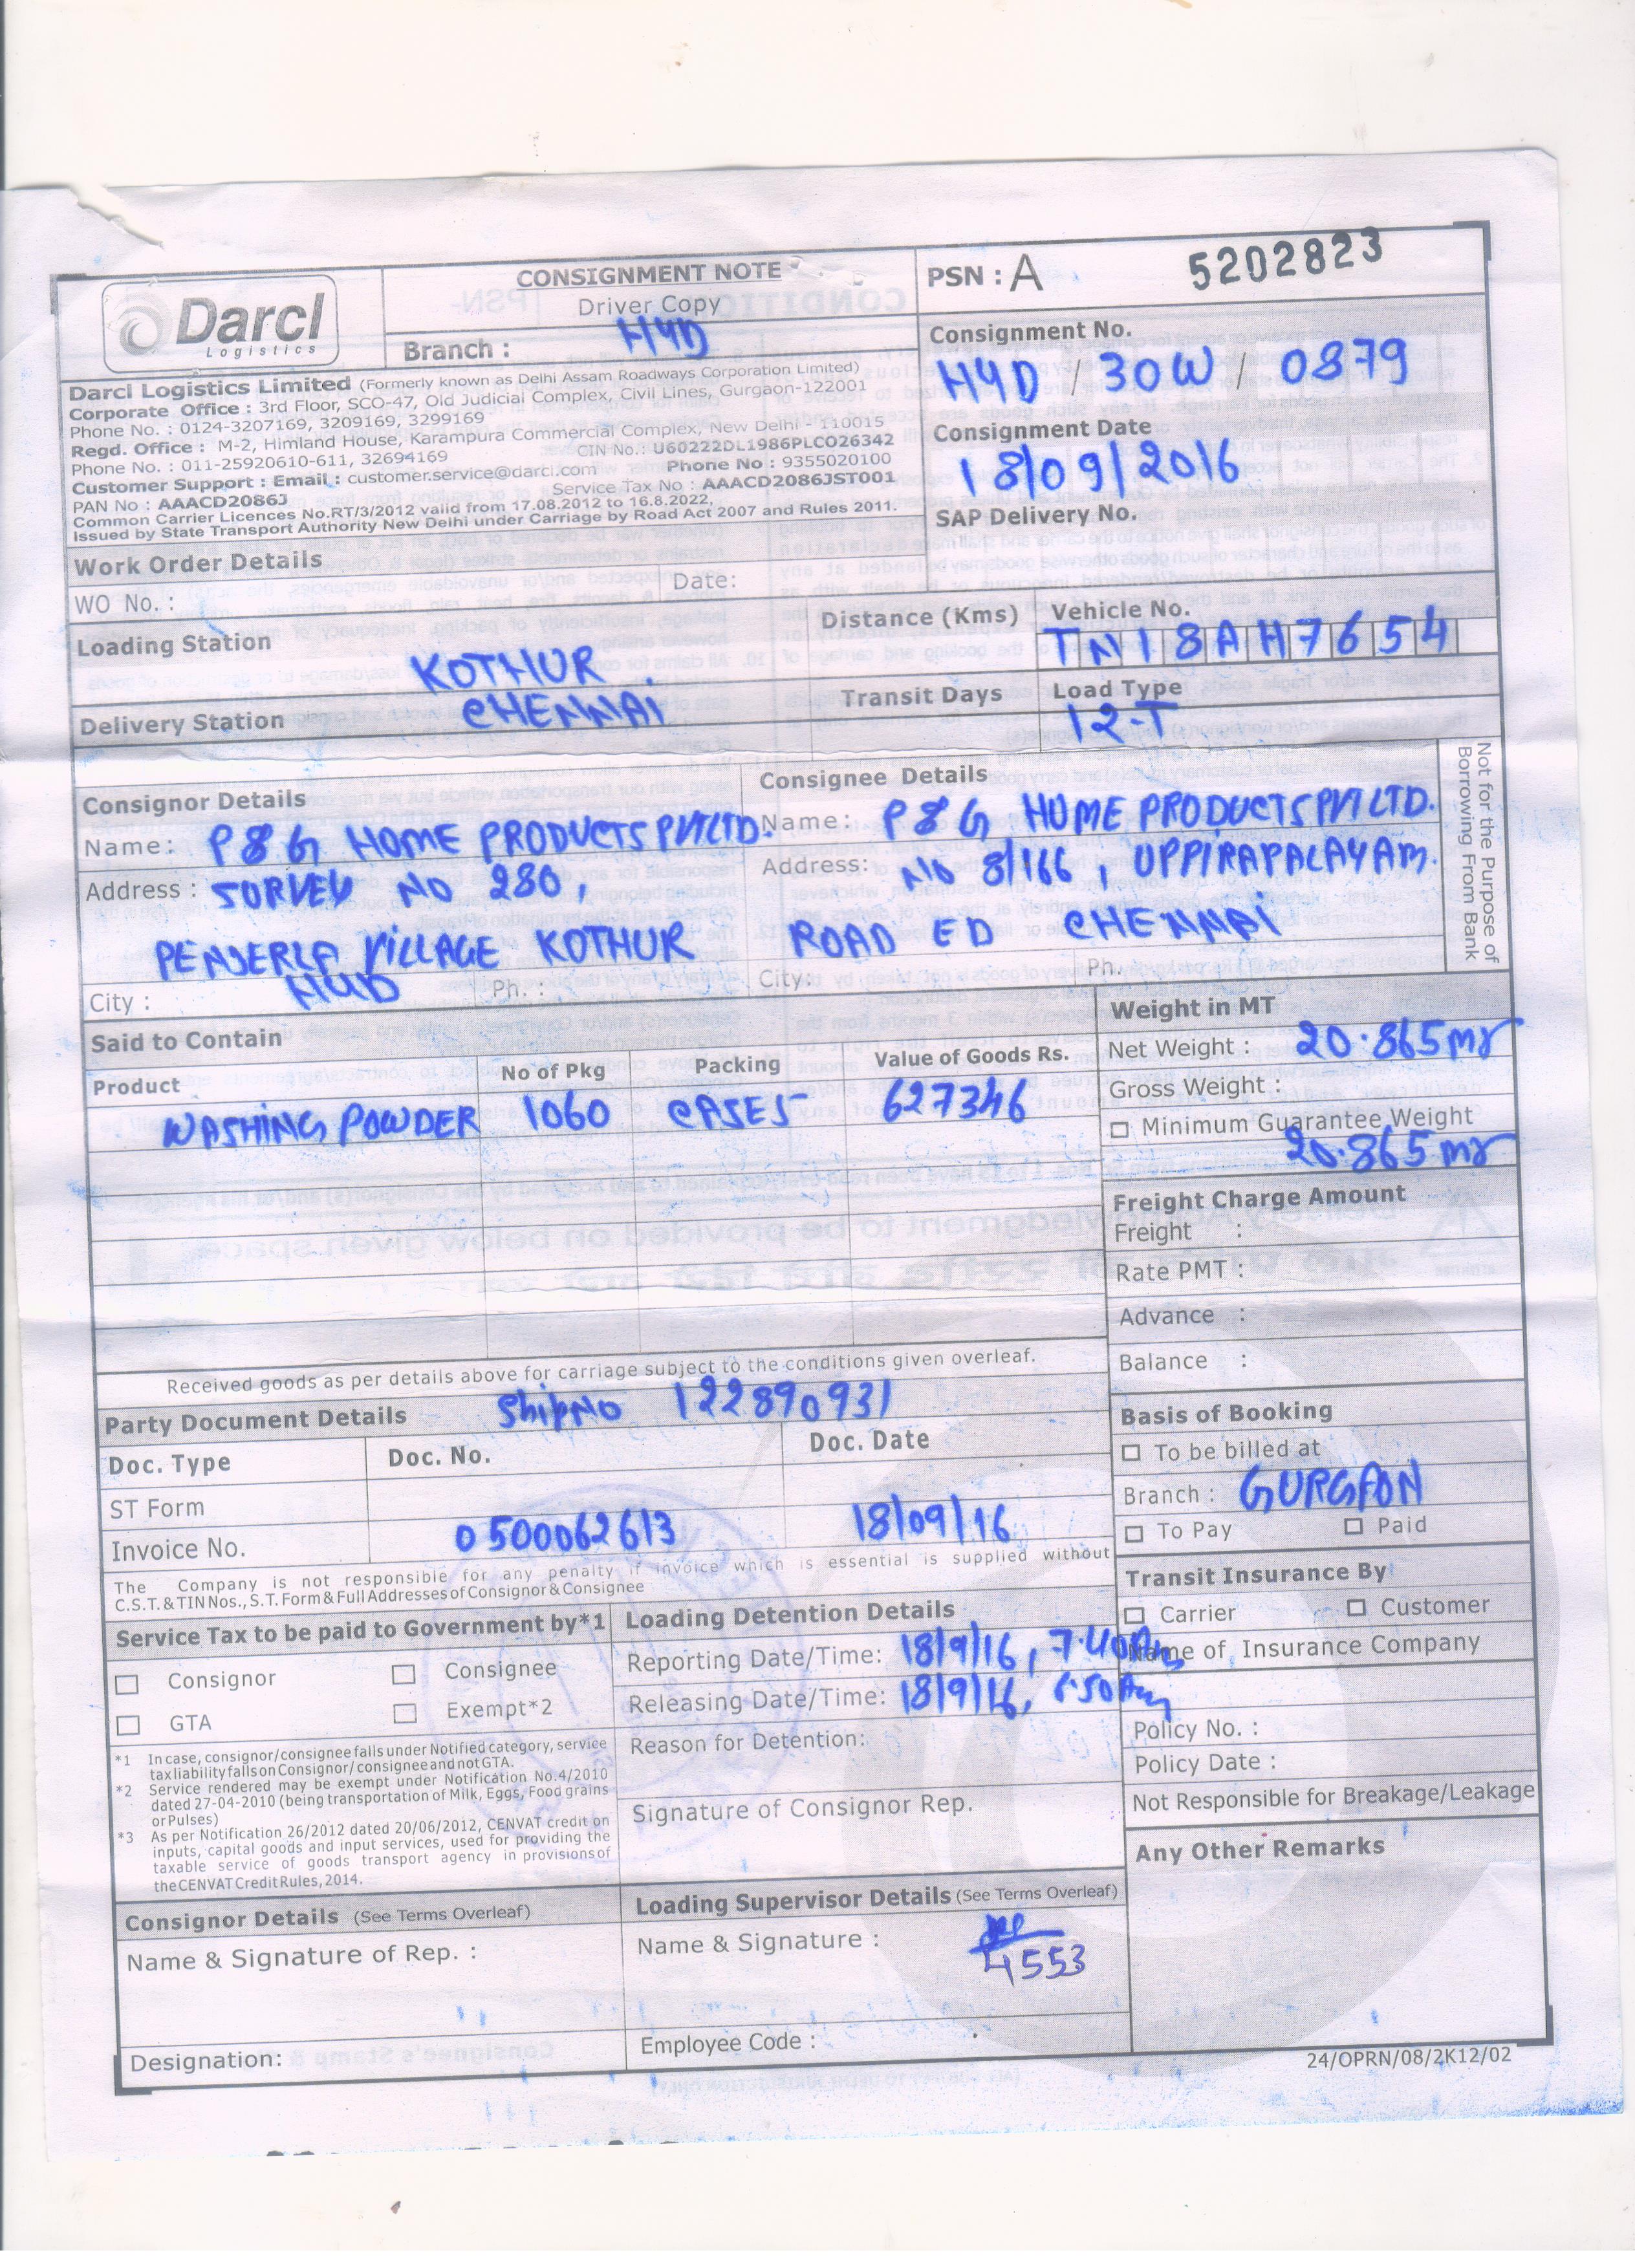 CONSIGNMENT NOTE
Driver Copy
PSN : A 5202823
Darcl
Logistics
Branch : HYD
Consignment No.
HYD / 30W / 0879
Darcl Logistics Limited (Formerly known as Delhi Assam Roadways Corporation Limited)
Corporate Office : 3rd Floor, SCO-47, Old Judicial Complex, Civil Lines, Gurgaon-122001
Phone No. : 0124-3207169, 3209169, 3299169
Regd. Office : M-2, Himland House, Karampura Commercial Complex, New Delhi - 110015
Phone No. : 011-25920610-611, 32694169 CIN No.: U60222DL1986PLCO26342
Customer Support : Email : customer.service@darcl.com Phone No : 9355020100
PAN No : AAACD2086J Service Tax No : AAACD2086JST001
Common Carrier Licences No.RT/3/2012 valid from 17.08.2012 to 16.8.2022,
Issued by State Transport Authority New Delhi under Carriage by Road Act 2007 and Rules 2011.
Consignment Date
18/09/2016
SAP Delivery No.
Work Order Details
WO No. : Date:
Loading Station KOTHUR
Distance (Kms)
Vehicle No.
TN18AH7654
Delivery Station CHENNAI
Transit Days
Load Type
12-T
Consignor Details
Name: P&G HOME PRODUCTS PVT LTD.
Address : SURVEY NO 280,
PENJERLA VILLAGE KOTHUR
City : HYD Ph. :
Consignee Details
Name: P&G HOME PRODUCTS PVT LTD.
Address: NO 8/166, UPPIRAPALAYAM.
ROAD ED CHENNAI
City: Ph.
Not for the Purpose of
Borrowing From Bank
Said to Contain
Product No of Pkg Packing Value of Goods Rs.
WASHING POWDER 1060 CASES 627346
Weight in MT
Net Weight : 20.865 MT
Gross Weight :
Minimum Guarantee Weight
20.865 MT
Freight Charge Amount
Freight :
Rate PMT :
Advance :
Balance :
Received goods as per details above for carriage subject to the conditions given overleaf.
Party Document Details Ship No 122890931
Doc. Type Doc. No. Doc. Date
ST Form
Invoice No. 0500062613 18/09/16
The Company is not responsible for any penalty if invoice which is essential is supplied without
C.S.T. & TIN Nos., S.T. Form & Full Addresses of Consignor & Consignee
Basis of Booking
To be billed at
Branch : GURGAON
To Pay Paid
Transit Insurance By
Carrier Customer
Name of Insurance Company
Policy No. :
Policy Date :
Not Responsible for Breakage/Leakage
Service Tax to be paid to Government by*1
Consignor Consignee
GTA Exempt*2
*1 In case, consignor/consignee falls under Notified category, service
tax liability falls on Consignor/ consignee and not GTA.
*2 Service rendered may be exempt under Notification No.4/2010
dated 27-04-2010 (being transportation of Milk, Eggs, Food grains
or Pulses)
*3 As per Notification 26/2012 dated 20/06/2012, CENVAT credit on
inputs, capital goods and input services, used for providing the
taxable service of goods transport agency in provisions of
the CENVAT Credit Rules, 2014.
Loading Detention Details
Reporting Date/Time: 18/9/16, 7.40
Releasing Date/Time: 18/9/16,
Reason for Detention:
Signature of Consignor Rep.
Any Other Remarks
Consignor Details (See Terms Overleaf)
Name & Signature of Rep. :
Designation:
Loading Supervisor Details (See Terms Overleaf)
Name & Signature :
4553
Employee Code :
24/OPRN/08/2K12/02